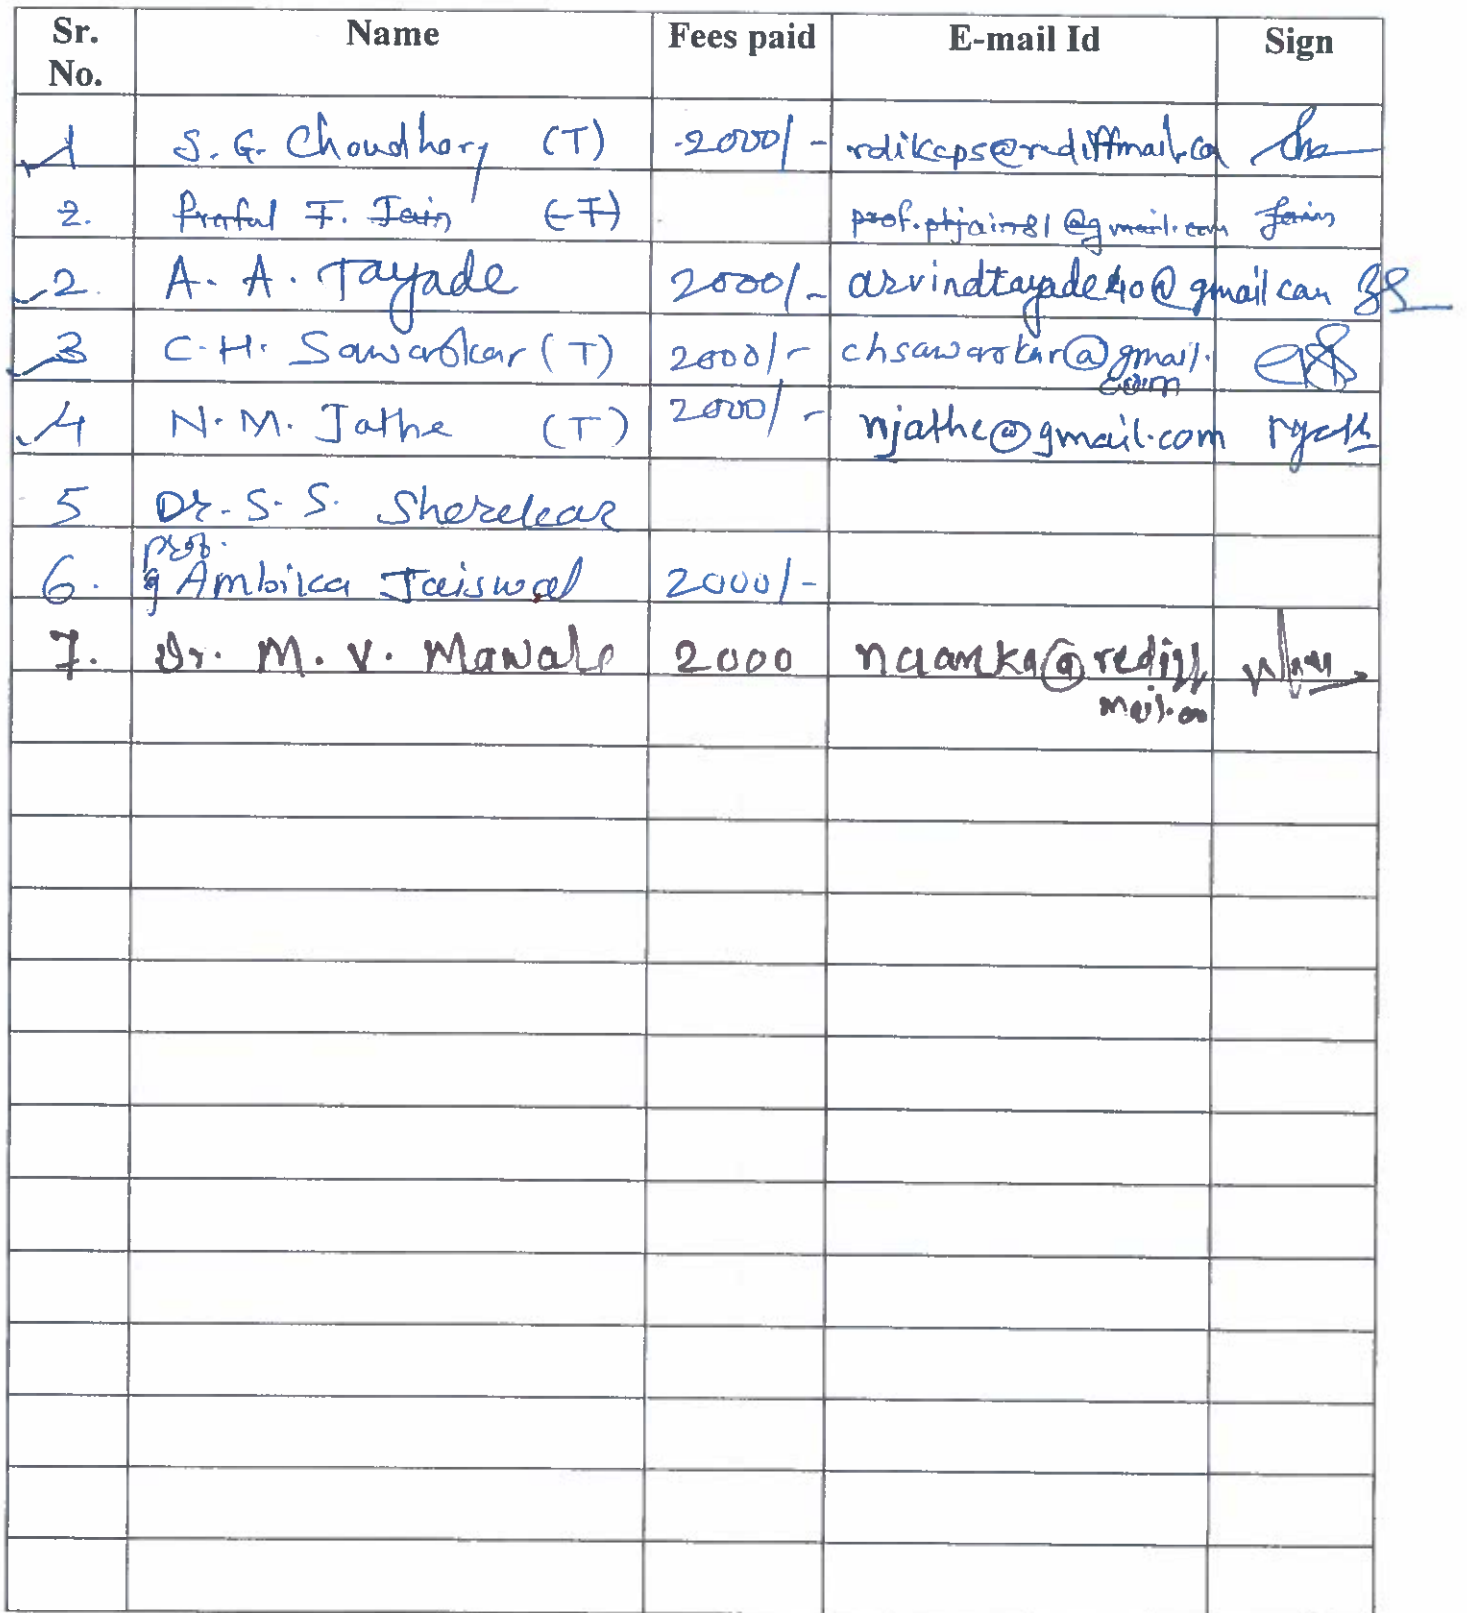 Sr. No. Name Fees paid E-mail Id Sign
1 S. G. Choudhary (T) 2000/- rdikcps@rediffmail.co
2. Praful F. Jain (T) prof.pfjain81@gmail.com Jain
2. A. A. Tayade 2000/- arvindtayade40@gmail com
3 C. H. Sawarkar (T) 2000/- chsawarkar@gmail.com
4 N. M. Jathe (T) 2000/- njathe@gmail.com
5 Dr. S. S. Sherekar
6. prof. Ambika Jaiswal 2000/-
7. Dr. M. V. Mawale 2000 naanka@rediffmail.co